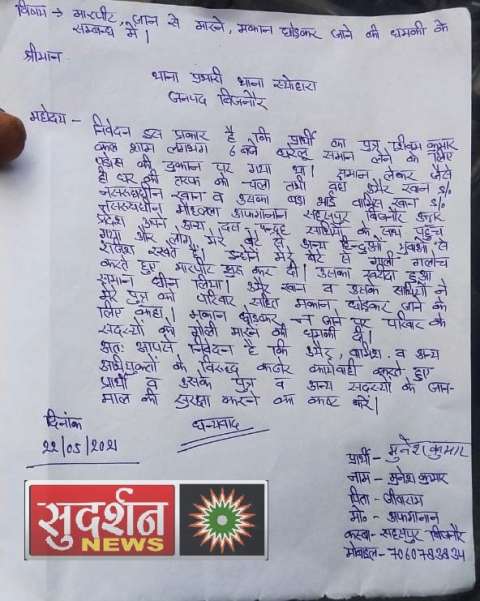 विषय → मारपीट, जान से मारने, मकान छोड़कर जाने की धमकी के
सम्बन्ध में।
श्रीमान
थाना प्रभारी थाना स्योहारा
जनपद बिजनौर
महोदय -
निवेदन इस प्रकार है कि प्रार्थी का पुत्र शिवम कुमार
कल शाम लगभग 6 बजे घरेलू समान लेने के लिए
पड़ोस की दुकान पर गया था। समान लेकर जैसे
ही घर की तरफ को चला तभी वहां शुमैर खान s/o
नसरूद्दीन खान व उसका बड़ा भाई खान s/o
नसरूद्दीन मोहल्ला अफगानान सहसपुर बिजनौर उत्तर
प्रदेश अपने अन्य दस पन्द्रह साथियों के साथ पहुंच
गया और लोग मेरे बेटे से अन्य हिन्दुओं युवाओं से
रखते हैं। इन्होंने मेरे बेटे से गाली गलौच
करते हुए मारपीट शुरू कर दी। उसका खरीदा हुआ
समान छीन लिया। शुमैर खान व उसके साथियों ने
मेरे पुत्र को परिवार सहित मकान छोड़कर जाने के
लिए कहा। मकान छोड़कर न जाने पर परिवार के
सदस्यों को गोली मारने की धमकी दी।
अतः आपसे निवेदन है कि शुमैर, व अन्य
अभियुक्तों के विरूद्ध कठोर कार्यवाही करते हुए
प्रार्थी व उसके पुत्र व अन्य सदस्यों के जान-
माल की सुरक्षा करने का कष्ट करें।
दिनांक
22/05/2021
धन्यवाद
प्रार्थी - मुनेश कुमार
नाम - मुनेश कुमार
पिता - जीवाराम
मो० - अफगानान
कस्बा - सहसपुर बिजनौर
मोबाइल - 7060783834
सुदर्शन
NEWS